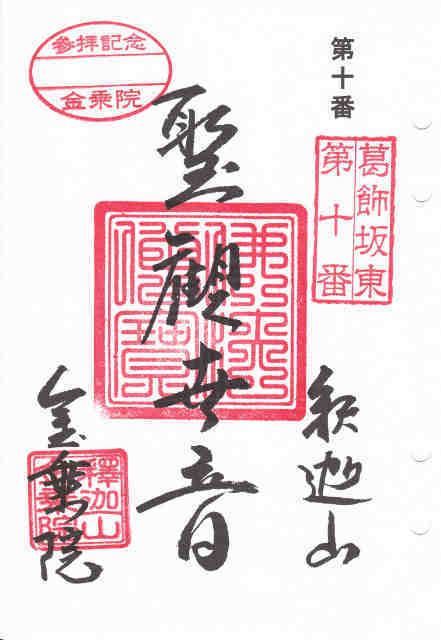 第十番
葛飾坂東
第十番
釈迦山
聖観世音
佛法僧寶
参拝記念
金乗院
金乗院
釋迦山
金乗院